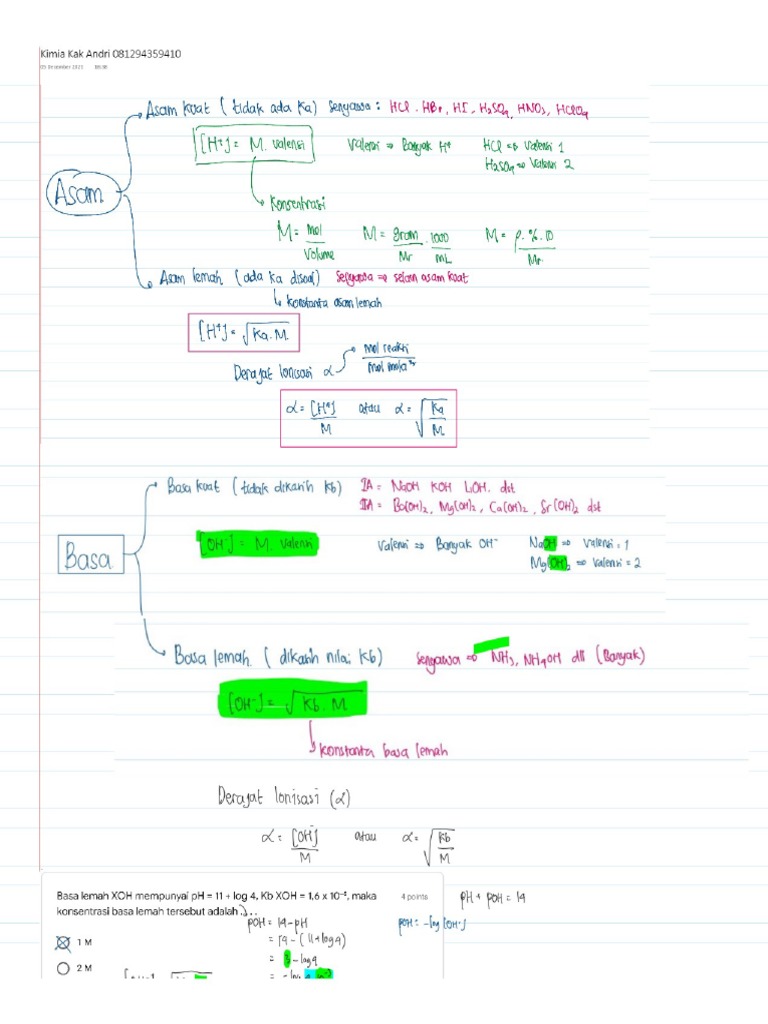 Kimia Kak Andri 081294359410
05 December 2023 18:38
Asam kuat ( tidak ada Ka) Senyawa : HCl . HBr, HI, H₂SO₄, HNO₃, HClO₄
[H⁺] = M. Valensi
Valensi ⇒ Banyak H⁺
HCl ⇒ Valensi 1
H₂SO₄ ⇒ Valensi 2
Asam
Konsentrasi
M = mol / Volume
M = gram / Mr . 1000 / mL
M = ρ.%.10 / Mr
Asam lemah (ada Ka disoal) Senyawa ⇒ selain asam kuat
konstanta asam lemah
[H⁺] = √Ka.M
Derajat Ionisasi α
mol reaksi / mol mola²
α = [H⁺] / M atau α = √Ka / M
Basa kuat (tidak dikasih Kb) IA = NaOH KOH LiOH. dst
IIA = Ba(OH)₂, Mg(OH)₂, Ca(OH)₂, Sr(OH)₂ dst
[OH⁻] = M. Valensi
Valensi ⇒ Banyak OH⁻
NaOH ⇒ Valensi = 1
Mg(OH)₂ ⇒ Valensi = 2
Basa
Basa lemah ( dikasih nilai Kb) Senyawa ⇒ NH₃, NH₄OH dll (Banyak)
[OH⁻] = √Kb.M
Konstanta basa lemah
Derajat Ionisasi (α)
α = [OH⁻] / M atau α = √Kb / M
Basa lemah XOH mempunyai pH = 11 + log 4, Kb XOH = 1,6 x 10⁻⁵, maka
konsentrasi basa lemah tersebut adalah ....
4 points
pH + pOH = 14
pOH = 14 - pH
pOH = -log [OH⁻]
1 M
= 14 - (11+log4)
= 3 - log4
2 M